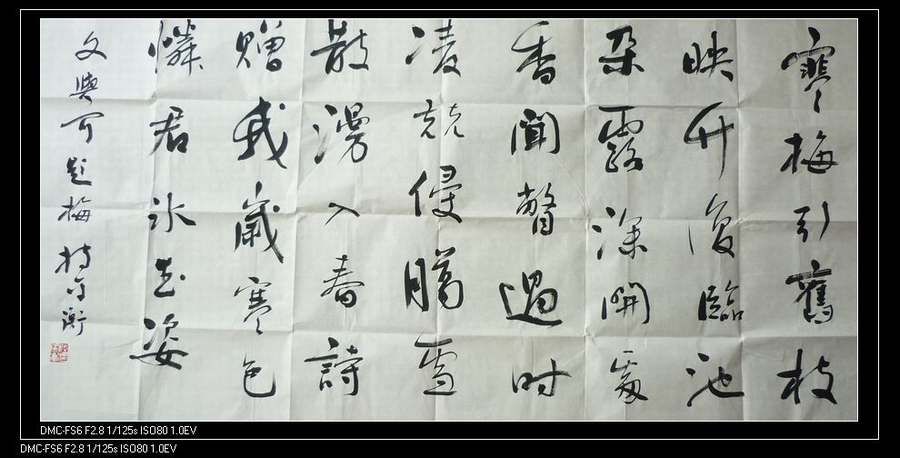 寒梅引舊枝
映竹復臨池
朵露深開處
香聞瞥過时
凌兢侵臈雪
散漫入春詩
贈我歲寒色
憐君冰玉姿
文與可題梅
DMC-FS6 F2.8 1/125s ISO80 1.0EV
DMC-FS6 F2.8 1/125s ISO80 1.0EV